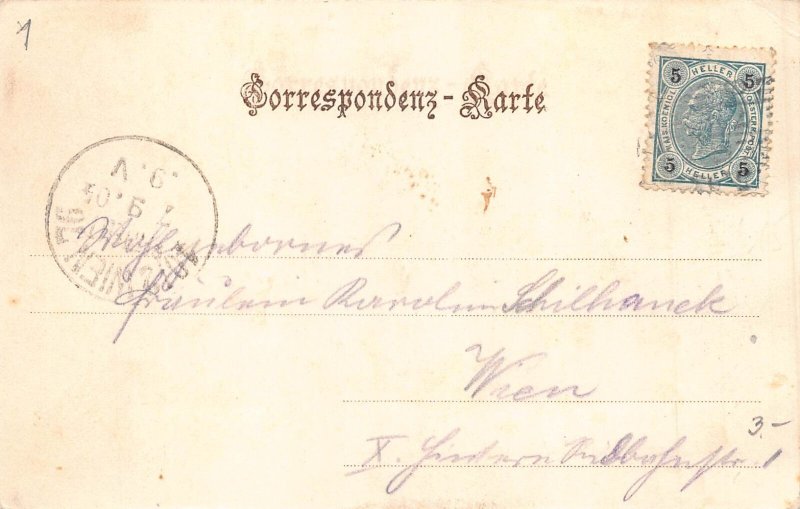 1
Correspondenz-Karte
5 HELLER 5
KAIS. KOENIGL. OESTERR. POST
5 HELLER 5
9. V
9.
WIEN
Wohlgebornes
Fräulein Karolina Schilhanek
Wien
X. Hintere Südbahnstr. 1
3.-